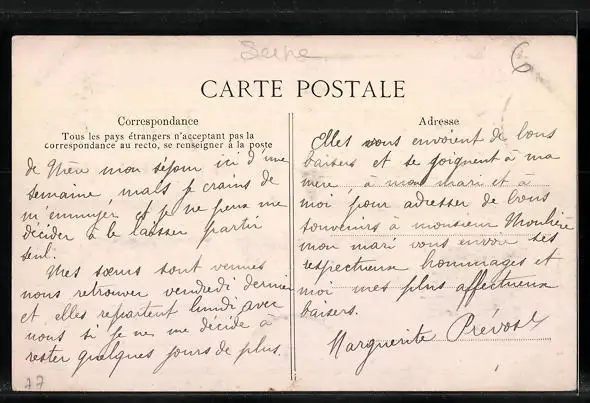 Seine
6
CARTE POSTALE
Correspondance
Tous les pays étrangers n'acceptant pas la
correspondance au recto, se renseigner à la poste
de mon séjour ici d'une
semaine, mais je crains de
m'ennuyer et je ne peux me
décider à le laisser partir
seul.
Mes sœurs sont venues
nous retrouver vendredi dernier
et elles repartent lundi avec
nous si je ne me décide à
rester quelques jours de plus.
77
Adresse
Elles vous envoient de bons
baisers et se joignent à ma
mère, à mon mari et à
moi pour adresser de bons
souvenirs à monsieur Moulière
mon mari vous envoie ses
respectueux hommages et
moi mes plus affectueux
baisers.
Marguerite Prévost